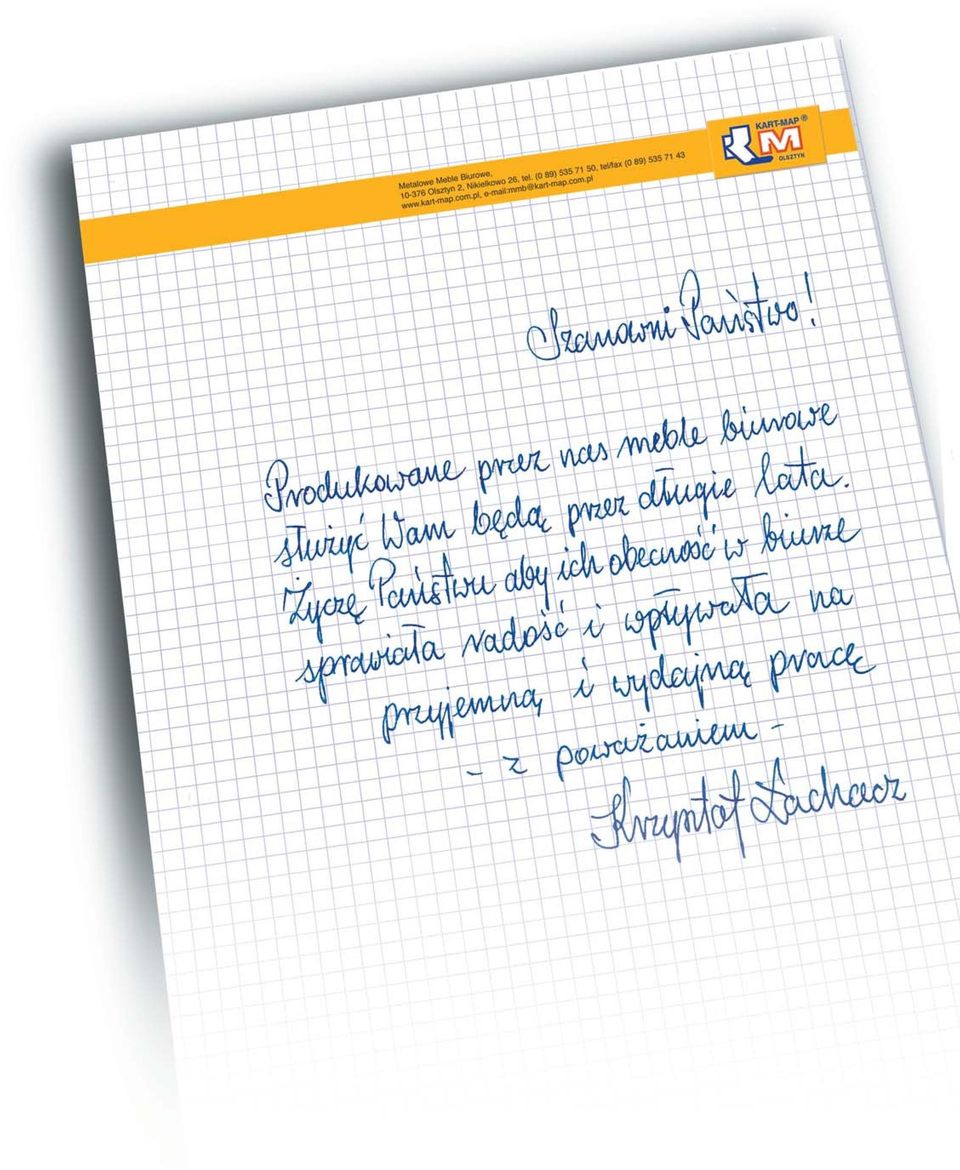 KART-MAP ®
KM
OLSZTYN
Metalowe Meble Biurowe,
10-376 Olsztyn 2, Nikielkowo 26, tel. (0 89) 535 71 50, tel/fax (0 89) 535 71 43
www.kart-map.com.pl, e-mail:mmb@kart-map.com.pl
Szanowni Państwo!
Produkowane przez nas meble biurowe
służyć Wam będą przez długie lata.
Życzę Państwu aby ich obecność w biurze
sprawiała radość i wpływała na
przyjemną i wydajną pracę
- z poważaniem -
Krzysztof Lachacz